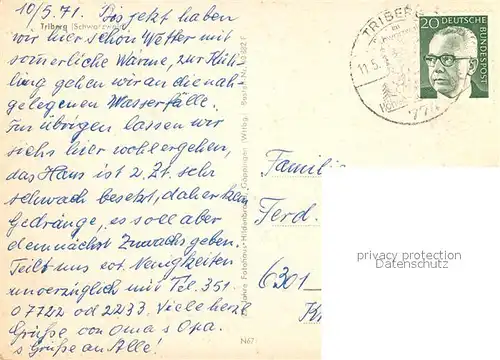 10/5.71. Bis jetzt haben
Triberg (Schwarzwald)
wir hier schön Wetter mit
sommerliche Wärme, zur Küh-
lung gehen wir an die nah
gelegenen Wasserfälle.
Im übrigen lassen wir
siehs hier wohlergehen,
das Haus ist z. Zt. sehr
schwach besetzt, daher kein
Gedränge, es soll aber
demnächst Zuwachs geben.
Teilt uns evt. Neuigkeiten
unverzüglich mit Tel. 351
07722 od 2233. Viele herzl
Grüße von Oma & Opa.
s Grüße an Alle!
Jahre Fotohaus Hildenbrand, Göppingen (Wttbg.
N67
TRIBERG
11.5.
20 DEUTSCHE
BUNDESPOST
Famili
Ferd.
6301
privacy protection
Datenschutz